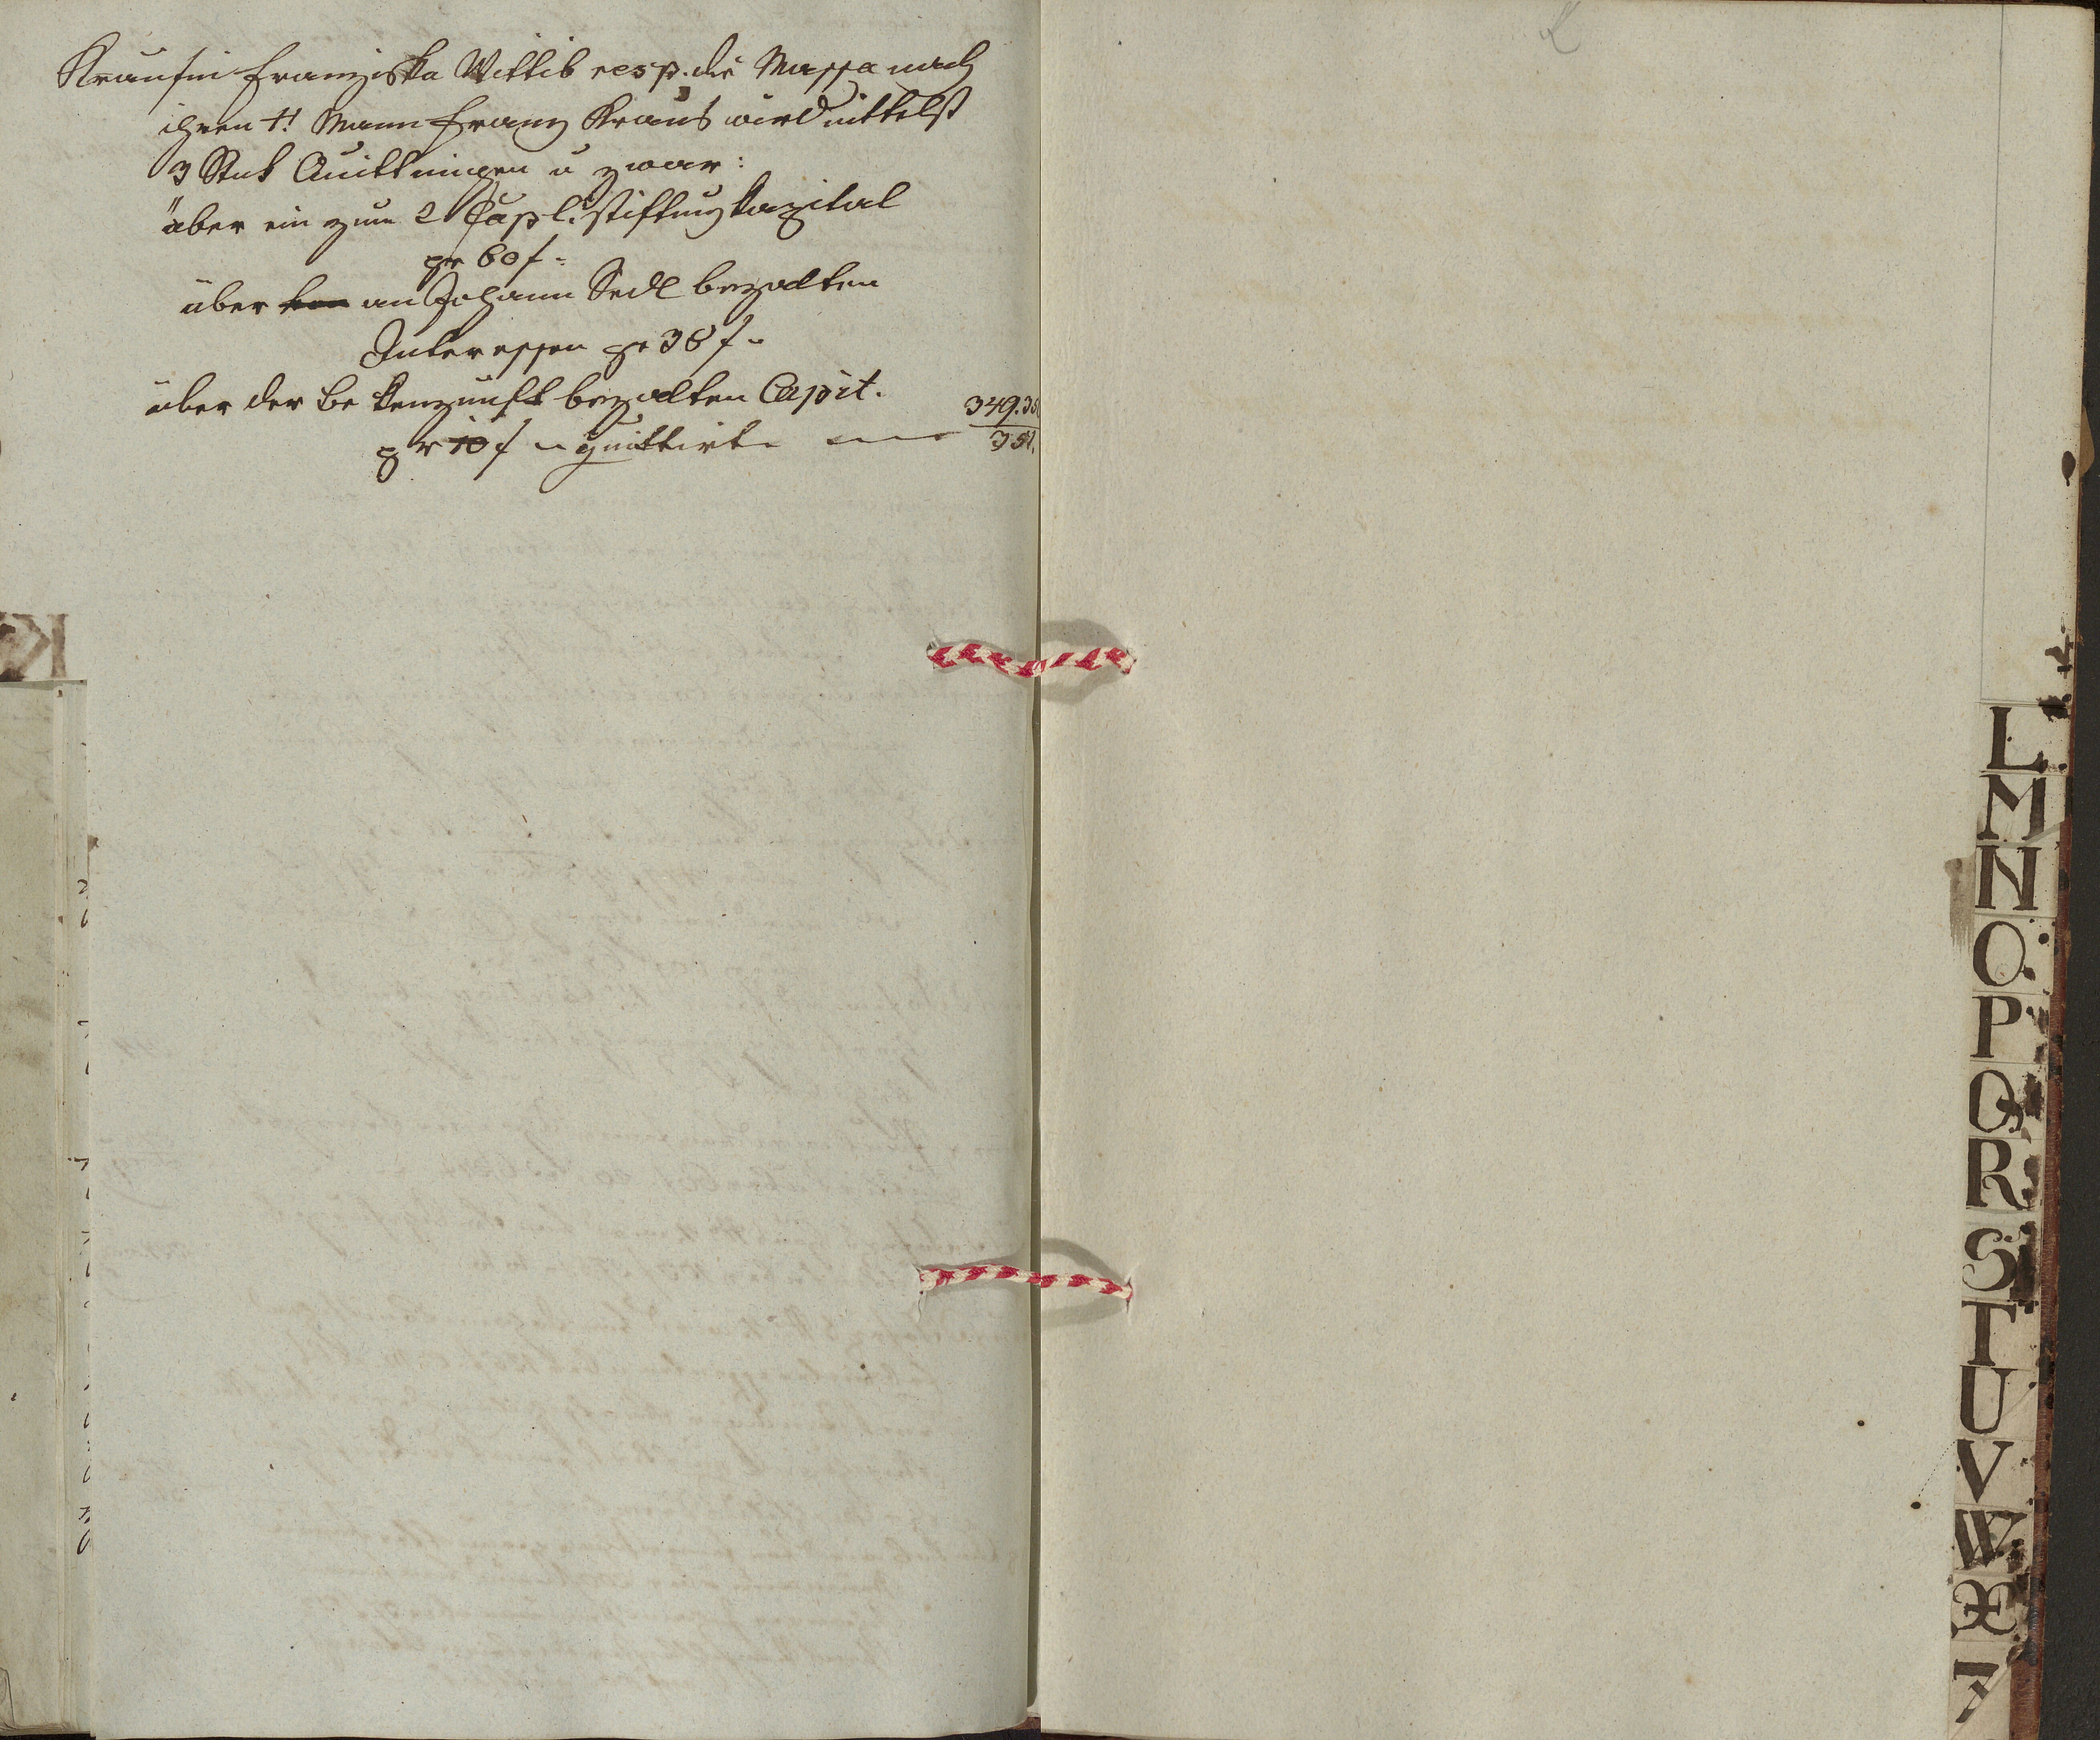 Krausin Franziska Wittib resp. die Massa nach
ihren ++! Mann Franz Kraus wird mittelst
3 Stuk Quittungen u zwar:
über ein zum 2 Capl. Stiftung Kapital
pr 60 f =
über an Johann Sedl bezalten
Interessen pr 38 f =
über der Bekenzunft bezalten Capit.
pr 10 f = quittirt
349.35
351.
K
L
M
N
O
P
Q
R
S
T
U
V
W
X
Z